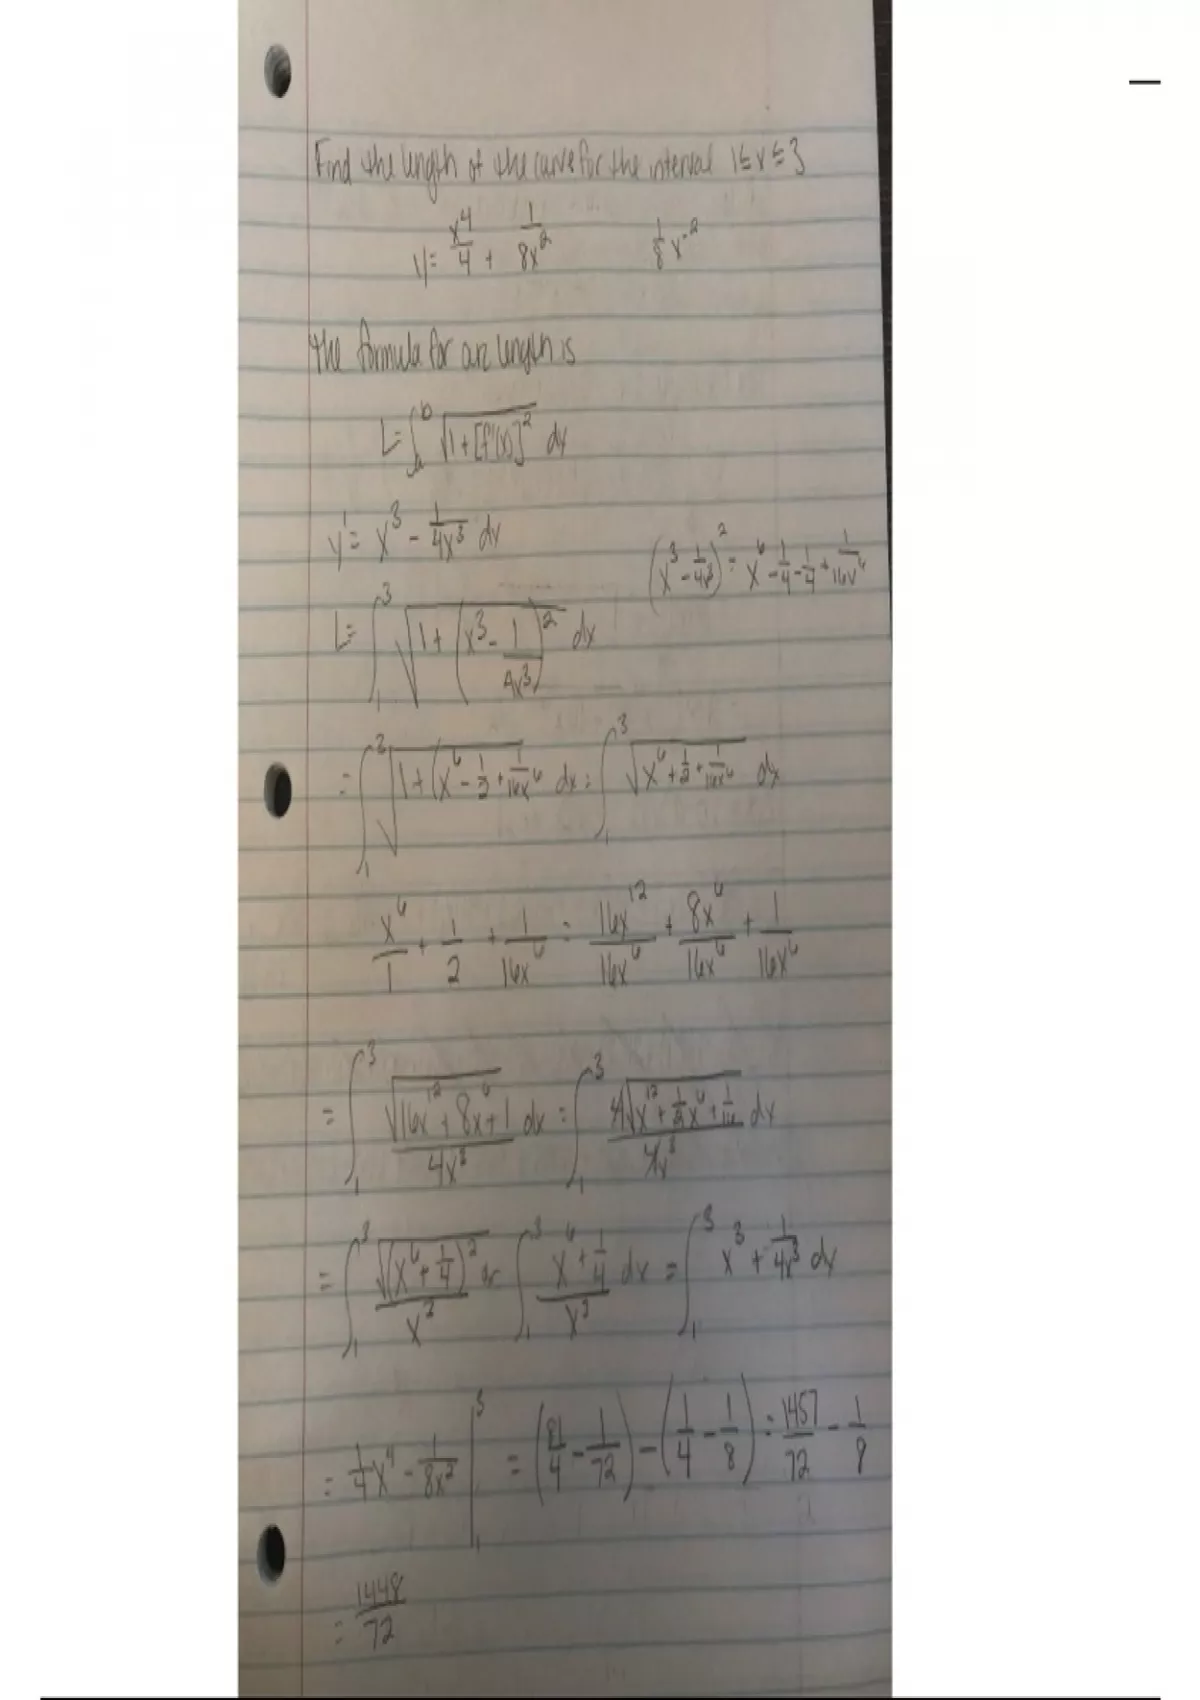 Find the length of the curve for the interval 1 ≤ x ≤ 3
y = x^4/4 + 1/(8x^2)    1/8 x^-2
the formula for arc length is
L = ∫_a^b √(1 + [f'(x)]^2) dx
y' = x^3 - 1/(4x^3) dx
(x^3 - 1/(4x^3))^2 = x^6 - 1/4 - 1/4 + 1/(16x^6)
L = ∫_1^3 √(1 + (x^3 - 1/(4x^3))^2) dx
= ∫_1^3 √(1 + (x^6 - 1/2 + 1/(16x^6) dx = ∫_1^3 √(x^6 + 1/2 + 1/(16x^6)) dx
x^6/1 + 1/2 + 1/(16x^6) = 16x^12/(16x^6) + 8x^6/(16x^6) + 1/(16x^6)
= ∫_1^3 √(16x^12 + 8x^6 + 1)/(4x^3) dx = ∫_1^3 4√(x^12 + 1/2 x^6 + 1/16)/(4x^3) dx
= ∫_1^3 √((x^6 + 1/4)^2)/x^3 or ∫_1^3 (x^6 + 1/4)/x^3 dx = ∫_1^3 x^3 + 1/(4x^3) dx
= 1/4 x^4 - 1/(8x^2) |_1^3 = (81/4 - 1/72) - (1/4 - 1/8) = 1457/72 - 1/8
= 1448/72